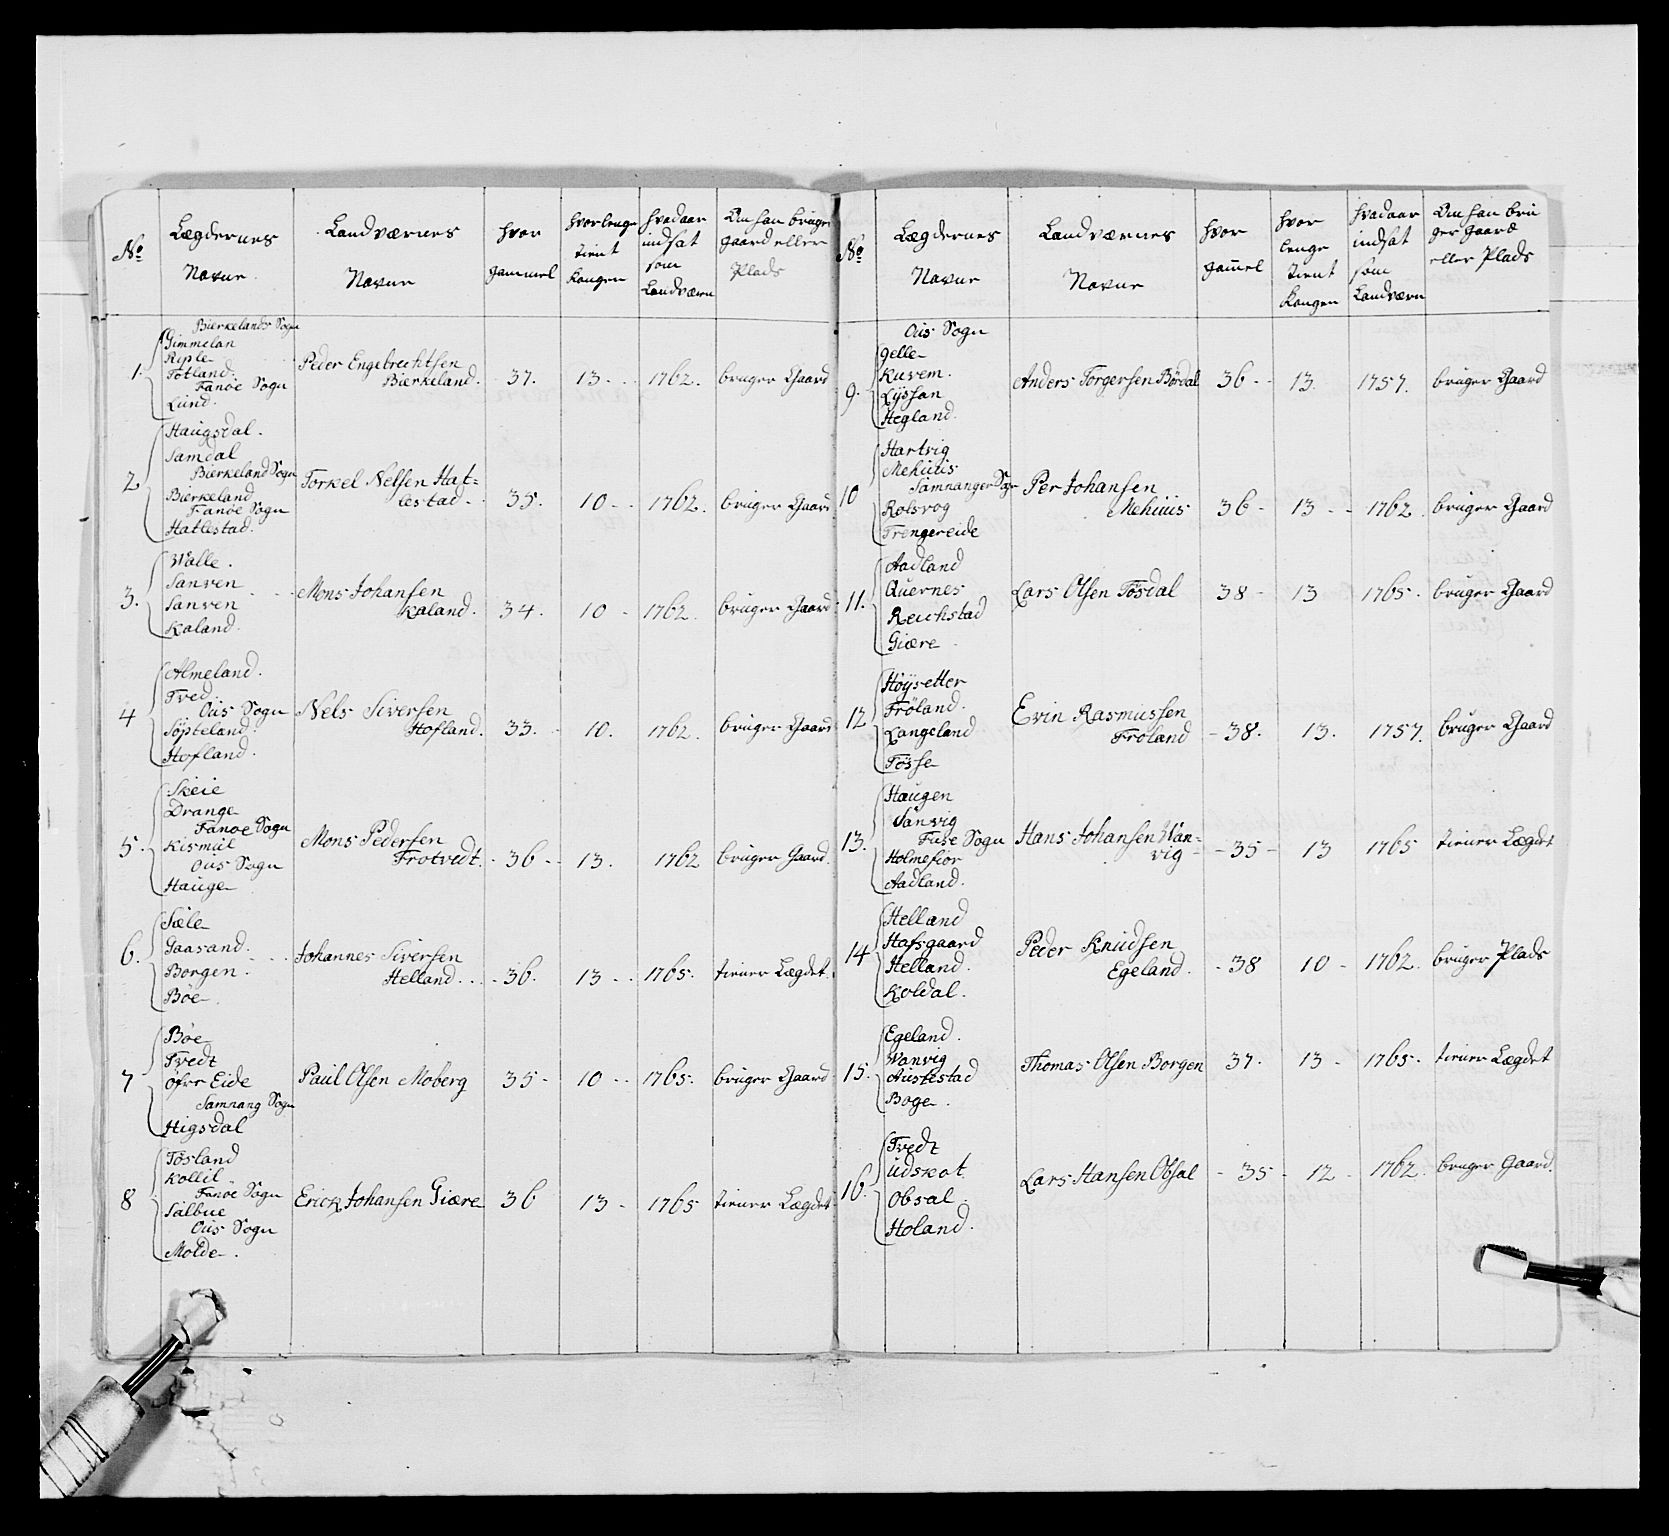 No
Lægdernes
Navne
Landværnes
Navne
hvor
gammel
hvorlenge
tient
Kongen
hvad aar
indsat
som
Landværn
Om han bruger
gaard eller
Plads
1.
Bierkelands Sogn
Gimmelan
Riple
Totland.
Fanöe Sogn
Lund.
Peder Engebrechtsen
Bierkeland.
37.
13
1762.
bruger Gaard
2.
Haugsdal.
Samdal
Bierkeland Sogn
Bierkeland
Fanöe Sogn
Hatlestad.
Torkel Nelsen Hat=
lestad
35.
10
1762.
bruger Gaard
3.
Walle.
Sanven
Sanven
Kaland.
Mons Johansen
Kaland.
34.
10
1762.
bruger Gaard
4
Almeland.
Tved
Ous Sogn
Söpteland
Hofland.
Nels Siversen
Hofland.
33.
10.
1762.
bruger Gaard
5.
Skeie
Drange
Fanoe Sogn
Kismul
Ous Sogn
Hauge
Mons Pedersen
Trotvedt.
36
13.
1762
bruger Gaard.
6.
Sæle
Gaasand.
Borgen.
Böe.
Johannes Siversen
Helland.
36.
13
1765.
tiener Lægdet.
7
Böe
Tvedt
öfre Eide
Samnang Sogn
Higsdal
Paul Olsen Moberg
35
10
1765.
bruger Gaard
8
Tösland
Kollil
Fanöe Sogn
Salbue
Ous Sogn
Molde.
Erick Johansen Giære
36
13
1765
tiener Lægdet
No
Lægdernes
Navne
Landværnes
Navne
hvor
gammel
hvor
lenge
tient
Kongen
hvad aar
indsat
som
Landværn
Om han bru
ger gaard
eller Plads
9.
Ous Sogn
Gelle
Kuvem.
Lyssan
Hegland.
Anders Torgersen Bördal
36
13.
1757.
bruger Gaard
10
Hartvig
Mehuus
Samnanger Sogn
Rolsvog
Trengereide
Per Johansen
Mehuus
36
13
1762.
bruger Gaard
11.
Aadland
Quernes
Reichstad
Giære
Lars Olsen Tösdal
38
13
1765.
bruger Gaard
12
Höysetter
Fröland.
Langeland
Tösse
Evin Rasmussen
Fröland
38.
13.
1757.
bruger Gaard
13.
Haugen
Vanvig
Fuse Sogn
Holmefior
Aadland.
Hans Johansen Wan=
vig
35
13
1765
tiener Lægdet
14
Helland
Hafsgaard
Helland.
Koldal.
Peder Knudsen
Egeland.
38
10
1762.
bruger Plads
15.
Egeland.
Wanvig
Austestad
Boge.
Thomas Olsen Borgen
37.
13
1765.
tiener Lægdet
16.
Tvedt
Udskot
Obsal
Holand.
Lars Hansen Obsal
35
12
1762.
bruger Gaard.